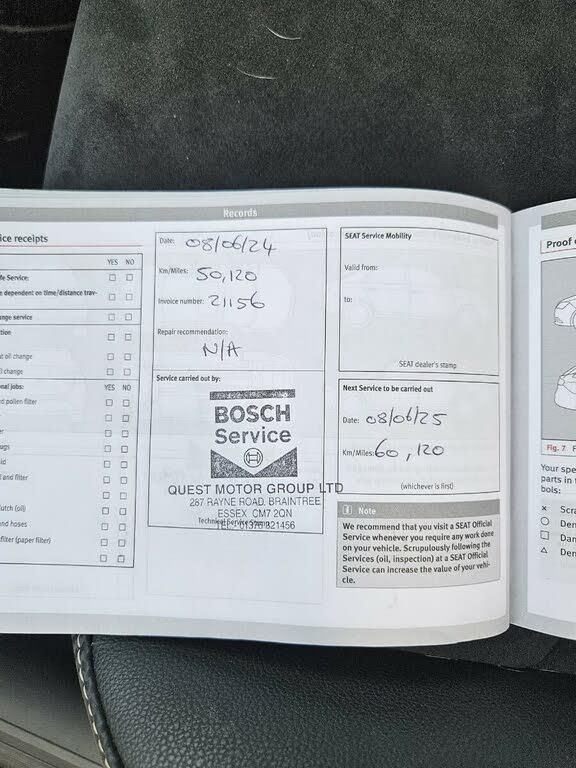 Records
ice receipts
YES NO
fe Service:
e dependent on time/distance trav-
nge service
tion
t oil change
l change
nal jobs:
YES NO
d pollen filter
er
ugs
id
l and filter
lutch (oil)
and hoses
filter (paper filter)
Date: 08/06/24
Km/Miles: 50,120
Invoice number: 21156
Repair recommendation:
N/A
Service carried out by:
BOSCH
Service
QUEST MOTOR GROUP LTD
287 RAYNE ROAD, BRAINTREE
ESSEX CM7 2QN
Technical Service Stamp
TEL: 01376 321456
SEAT Service Mobility
Valid from:
to:
SEAT dealer's stamp
Next Service to be carried out
Date: 08/06/25
Km/Miles: 60,120
(whichever is first)
i Note
We recommend that you visit a SEAT Official
Service whenever you require any work done
on your vehicle. Scrupulously following the
Services (oil, inspection) at a SEAT Official
Service can increase the value of your vehi-
cle.
Proof o
Fig. 7 F
Your spe
parts in t
bols:
Scra
Den
Dam
Den